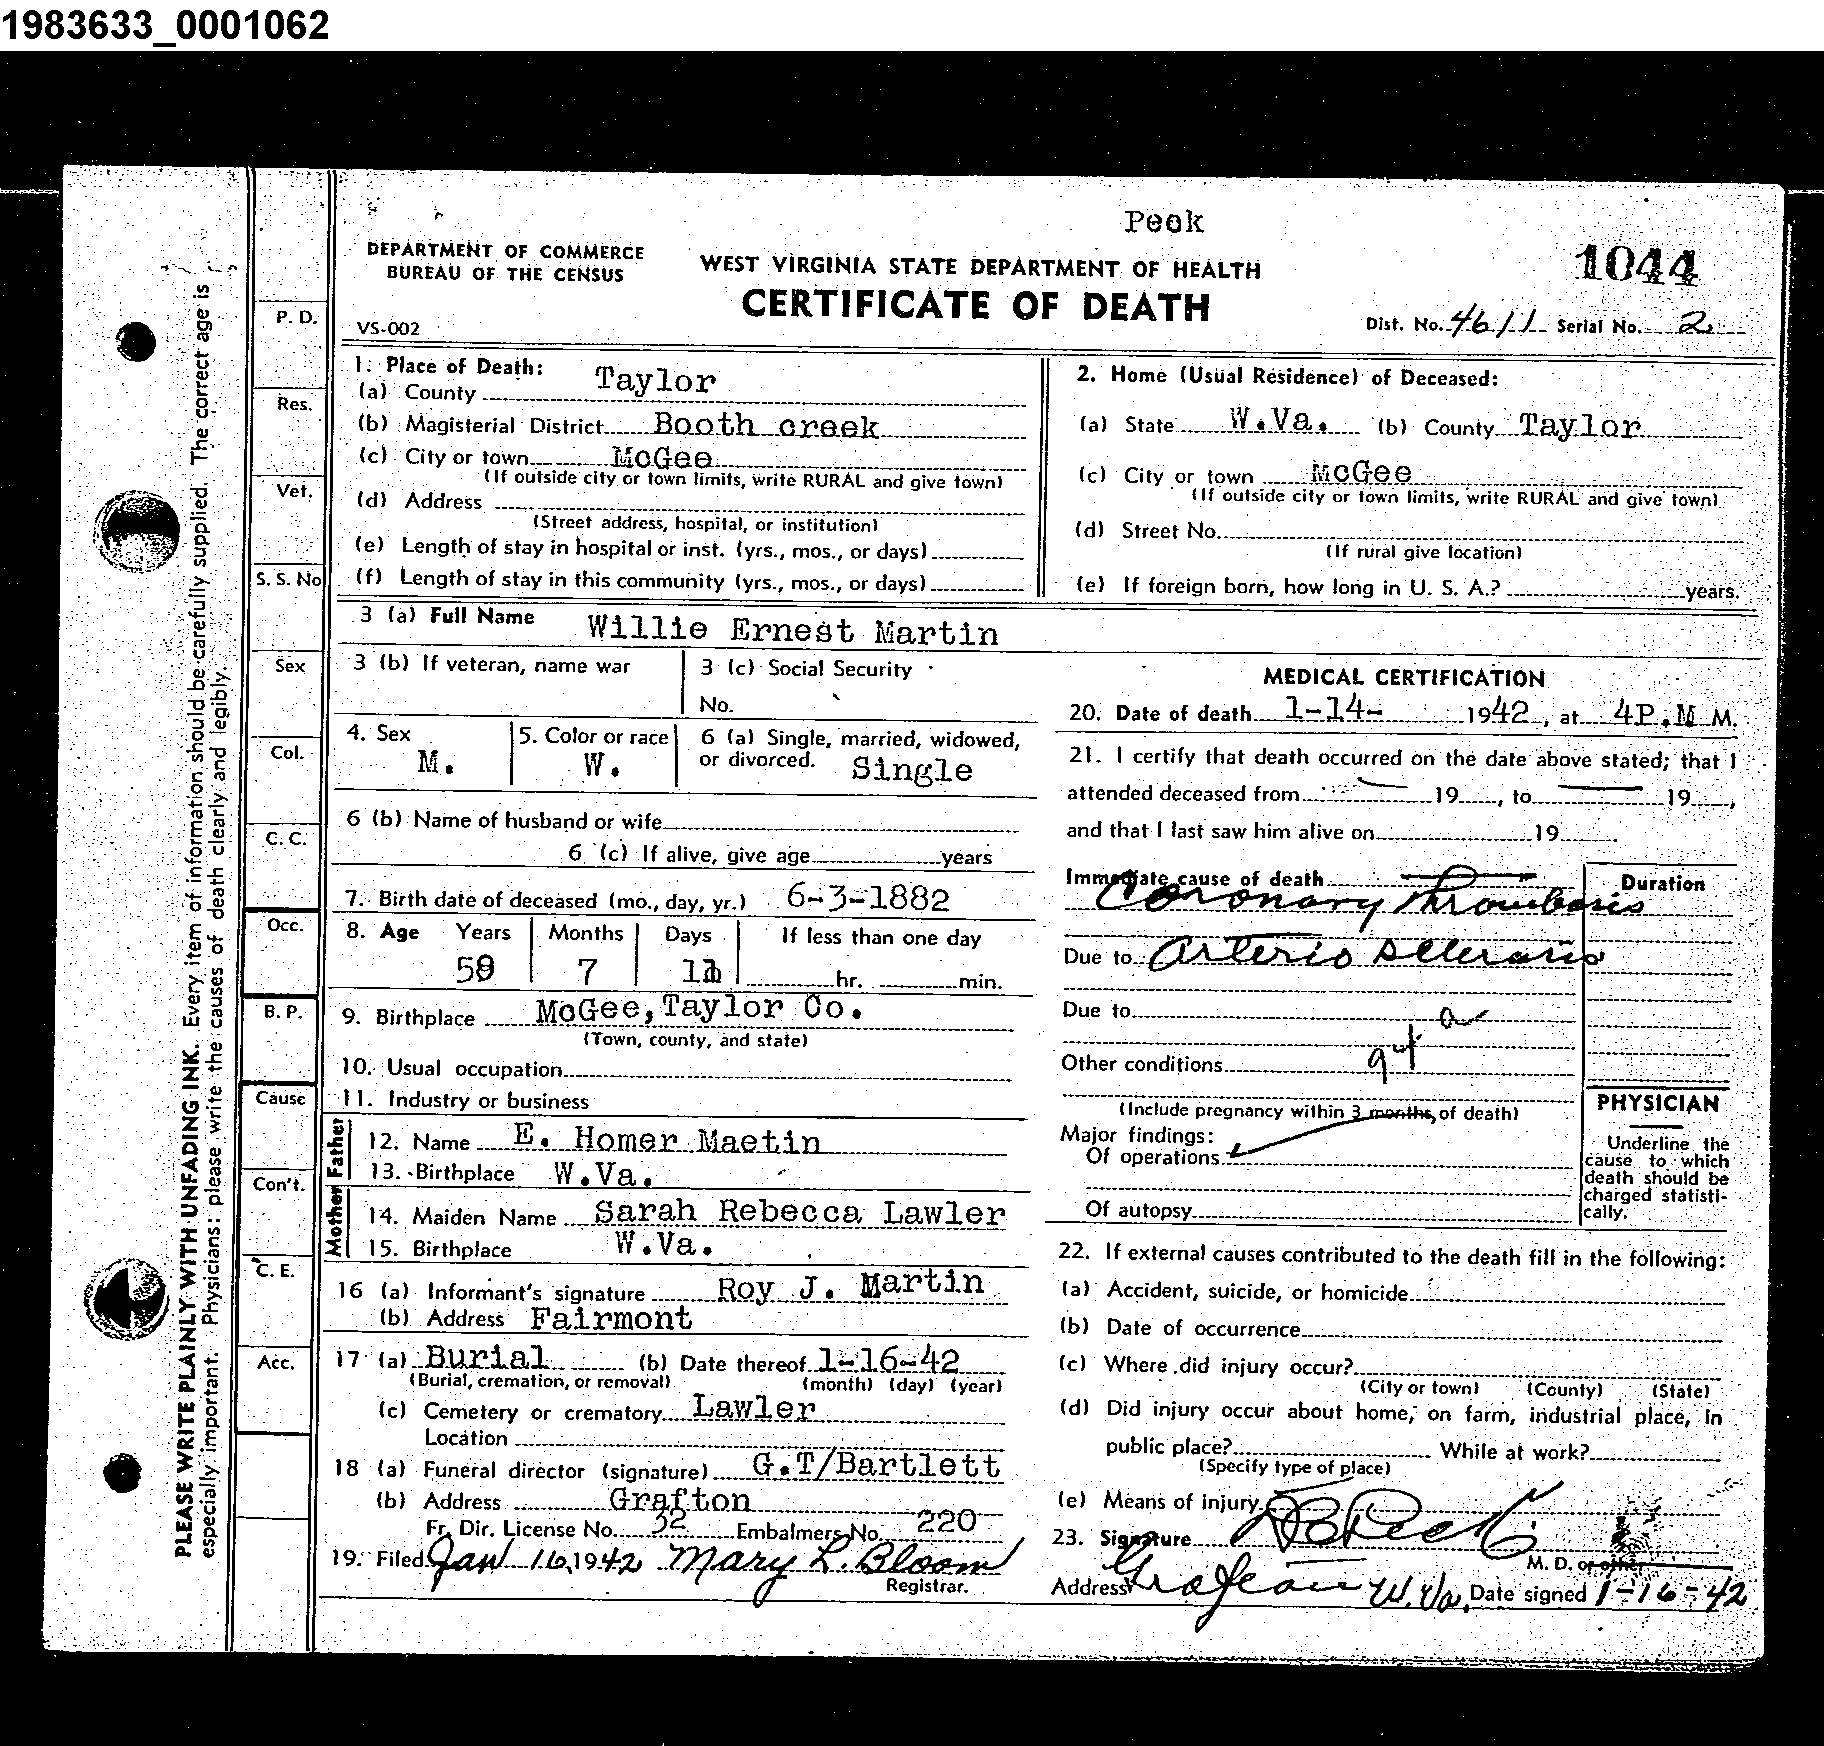 1983633_0001062
Peck
DEPARTMENT OF COMMERCE
BUREAU OF THE CENSUS
VS-002
WEST VIRGINIA STATE DEPARTMENT OF HEALTH
CERTIFICATE OF DEATH
1044
Dist. No. 4611 Serial No. 2
PLEASE WRITE PLAINLY WITH UNFADING INK. Every item of information should be carefully supplied. The correct age is
especially important. Physicians: please write the causes of death clearly and legibly.
P. D.
Res.
Vet.
S. S. No
Sex
Col.
C. C.
Occ.
B. P.
Cause
Con't.
C. E.
Acc.
1. Place of Death:
(a) County Taylor
(b) Magisterial District Booth creek
(c) City or town McGee
(If outside city or town limits, write RURAL and give town)
(d) Address
(Street address, hospital, or institution)
(e) Length of stay in hospital or inst. (yrs., mos., or days)
(f) Length of stay in this community (yrs., mos., or days)
2. Home (Usual Residence) of Deceased:
(a) State W.Va. (b) County Taylor
(c) City or town McGee
(If outside city or town limits, write RURAL and give town)
(d) Street No.
(If rural give location)
(e) If foreign born, how long in U. S. A.? years.
3 (a) Full Name Willie Ernest Martin
3 (b) If veteran, name war
3 (c) Social Security
No.
4. Sex
M.
5. Color or race
W.
6 (a) Single, married, widowed,
or divorced. Single
6 (b) Name of husband or wife
6 (c) If alive, give age years
7. Birth date of deceased (mo., day, yr.) 6-3-1882
8. Age Years Months Days If less than one day
59 7 11 hr. min.
9. Birthplace McGee, Taylor Co.
(Town, county, and state)
10. Usual occupation
11. Industry or business
Father
12. Name E. Homer Maetin
13. Birthplace W.Va.
Mother
14. Maiden Name Sarah Rebecca Lawler
15. Birthplace W.Va.
16 (a) Informant's signature Roy J. Martin
(b) Address Fairmont
17 (a) Burial (b) Date thereof 1-16-42
(Burial, cremation, or removal) (month) (day) (year)
(c) Cemetery or crematory Lawler
Location
18 (a) Funeral director (signature) G.T/Bartlett
(b) Address Grafton
Fr. Dir. License No. 32 Embalmers No. 220
19. Filed Jan 16, 1942 Mary L. Bloom
Registrar.
MEDICAL CERTIFICATION
20. Date of death 1-14- 1942, at 4P.M M.
21. I certify that death occurred on the date above stated; that I
attended deceased from 19 , to 19 ,
and that I last saw him alive on 19
Immediate cause of death
Duration
Coronary Thrombosis
Due to Arterio Sclerosis
Due to
a
Other conditions 94
(Include pregnancy within 3 months, of death)
Major findings:
Of operations
Of autopsy
PHYSICIAN
Underline the
cause to which
death should be
charged statisti-
cally.
22. If external causes contributed to the death fill in the following:
(a) Accident, suicide, or homicide
(b) Date of occurrence
(c) Where did injury occur?
(City or town) (County) (State)
(d) Did injury occur about home, on farm, industrial place, in
public place? While at work?
(Specify type of place)
(e) Means of injury
23. Signature Peck
M. D. or other
Address Grafton W.Va. Date signed 1-16-42